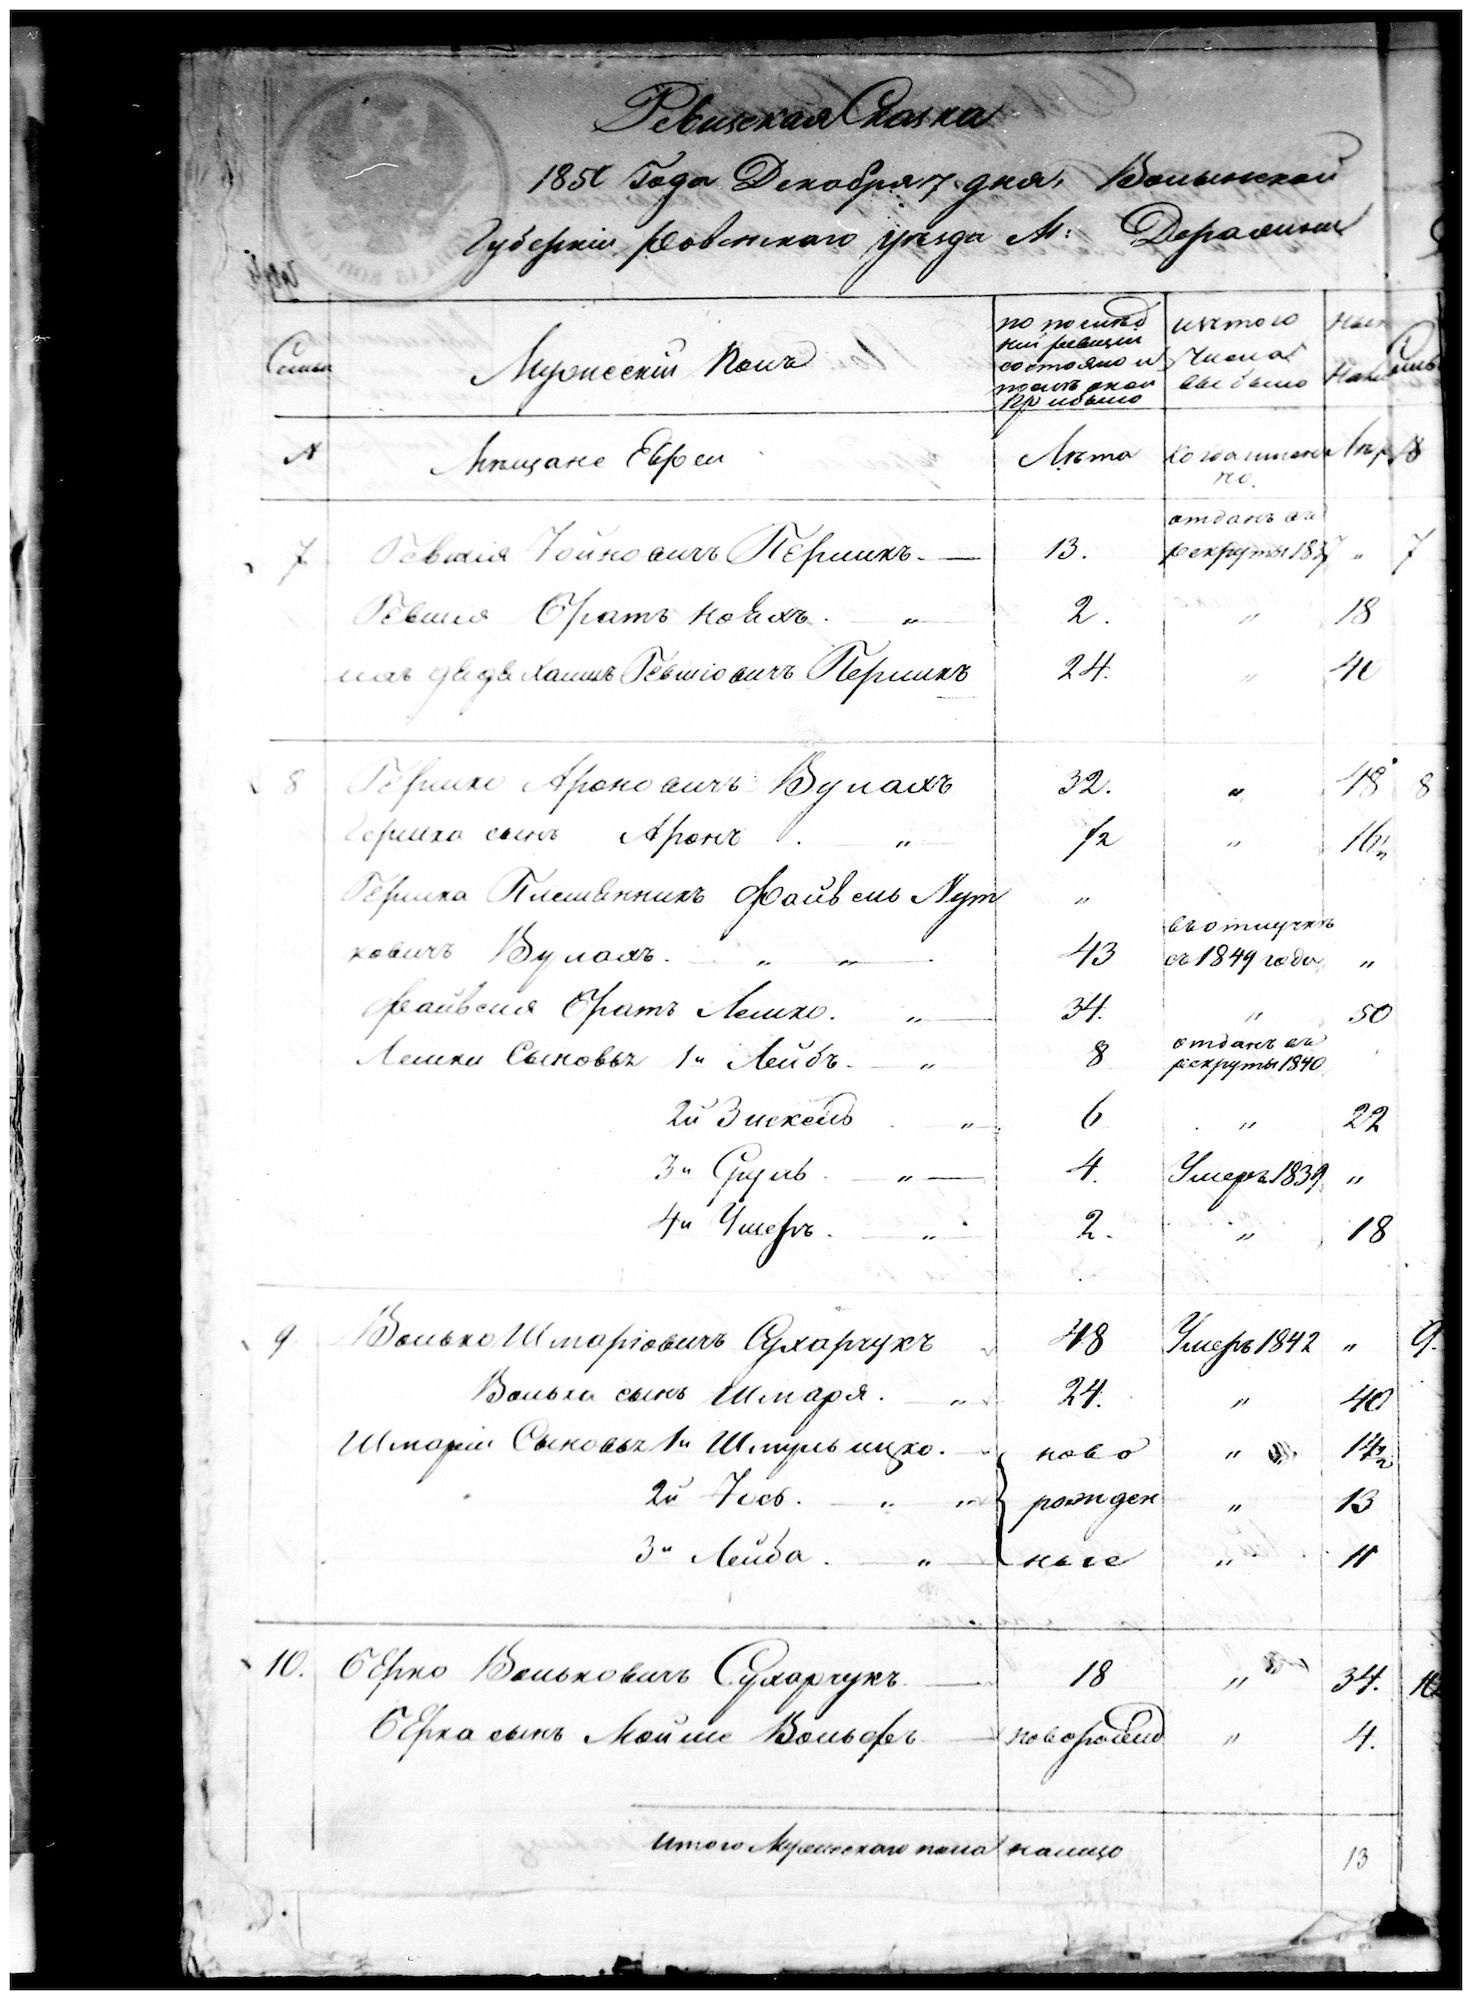 Ревизская Сказка
1850 Года Декабря 7 дня, Волынской
Губернiи Ровенскаго уезда М:
Семьи
Мужескiй Полъ
по послѣд
ней ревизiи
состояло и
послѣ оной
прибыло
изъ того
числа
выбыло
№
Мѣщане Евреи
Лѣта
Когда имен
но.
Лѣта
отданъ въ
7 Iойновичъ Першикъ. — 13. рекруты 1837 „ 7
братъ Новхъ. — „ — 2. „ 18
дядя Хаимъ Першикъ 24. „ 40
8 Гершко Ароновичъ Вулахъ 32. „ 48 8
Гершка сынъ Аронъ . — „ — ½ „ 16½
Гершка Племянникъ Файвель Мут „
въ отлучкѣ
ковичъ Вулахъ. — „ — „ — 43 съ 1849 года „
Файвеля братъ Лемко. „ — 34. „ 50
отданъ въ
Лемки Сыновья 1й Лейбъ. — „ 8 рекруты 1840
2й Зискель . „ — 6 „ 22
3й Сруль . „ — 4. Умеръ 1839 „
4й Умеръ . — „ — 2. „ 18
9 Волько Шмарiовичъ Сухарчукъ 48 Умеръ 1842 „ 9.
Волька сынъ Шмаря. — „ 24. „ 40
Шмарiи Сыновья 1й Шмуль ицко. — ново „ 14½
2й Iось. — „ „ рожден „ 13
3й Лейба . — „ — ные „ 11
10. Берко Вольковичъ Сухарчукъ — 18 „ 34. 10
Берка сынъ Мойше Вольфъ — новорожд „ 4.
Итого Мужескаго пола налицо 13